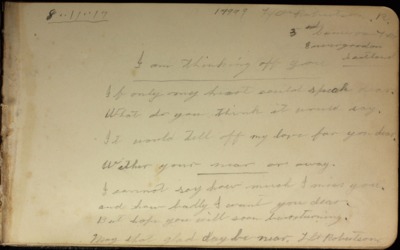 8-11-17
3rd
Scotland
I am thinking off you
If only my heart could speak dear
What do you think it would say.
It would tell off my love for you dear
Wether your near or away.
I cannot say how much I miss you.
and how badly I want you dear.
But hope you will soon be returning.
May that glad day be near. Robertson